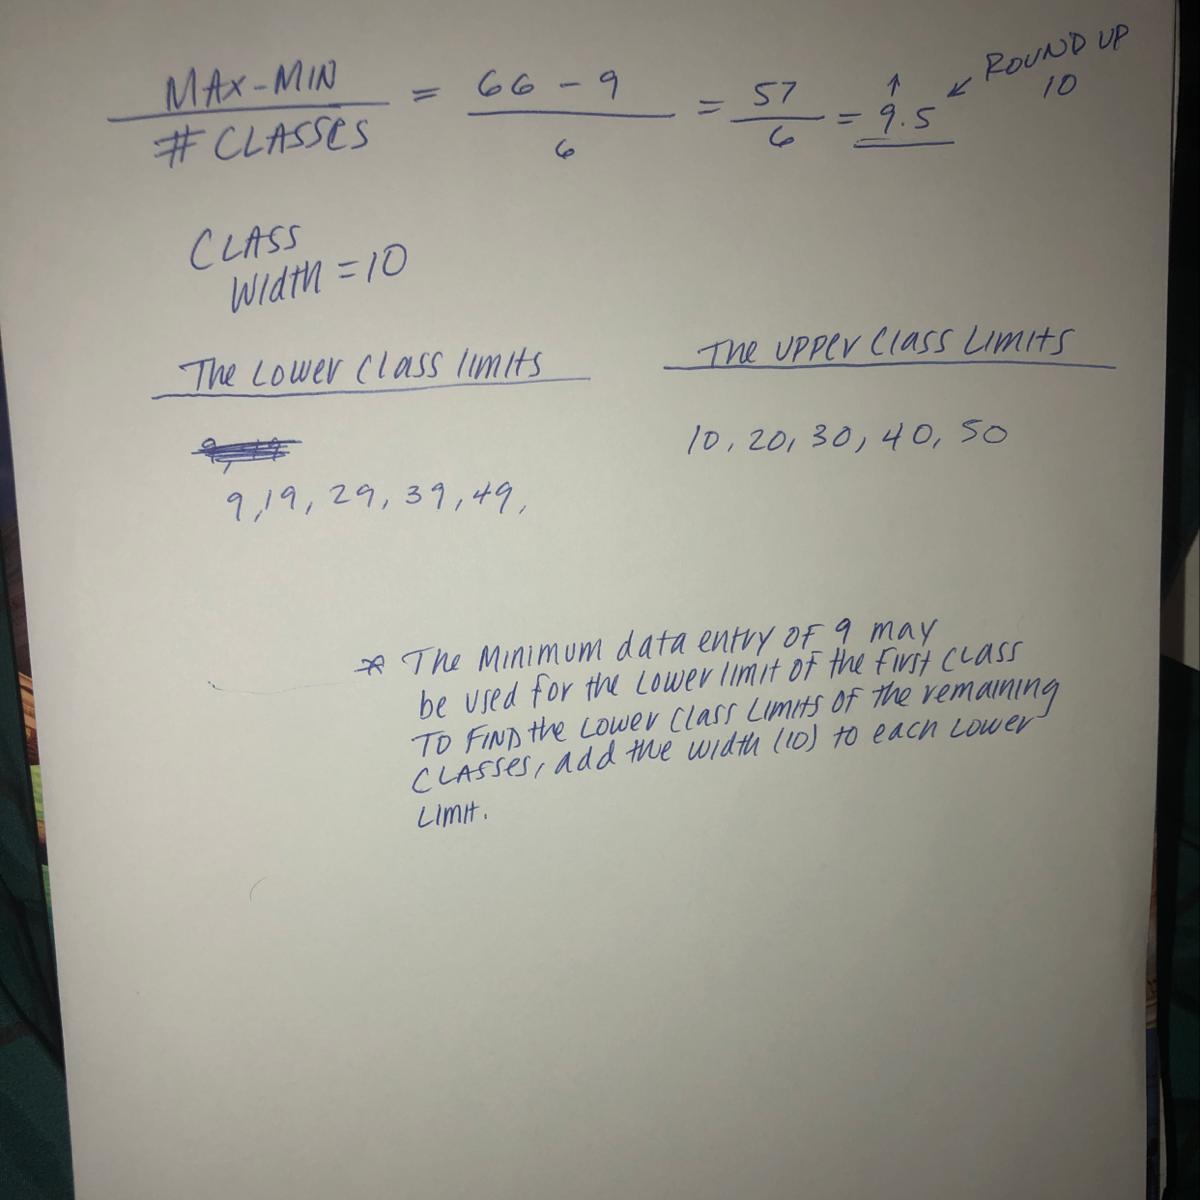 MAX-MIN = 66 - 9 = 57 = 9.5 ROUND UP
# CLASSES 6 6 10
CLASS
Width = 10
The Lower Class limits
The UPPer Class Limits
10, 20, 30, 40, 50
9, 19, 29, 39, 49,
* The Minimum data entry OF 9 may
be used for the Lower limit of the First Class
TO FIND the Lower Class Limits of the remaining
CLASSES, add the width (10) to each Lower
Limit.